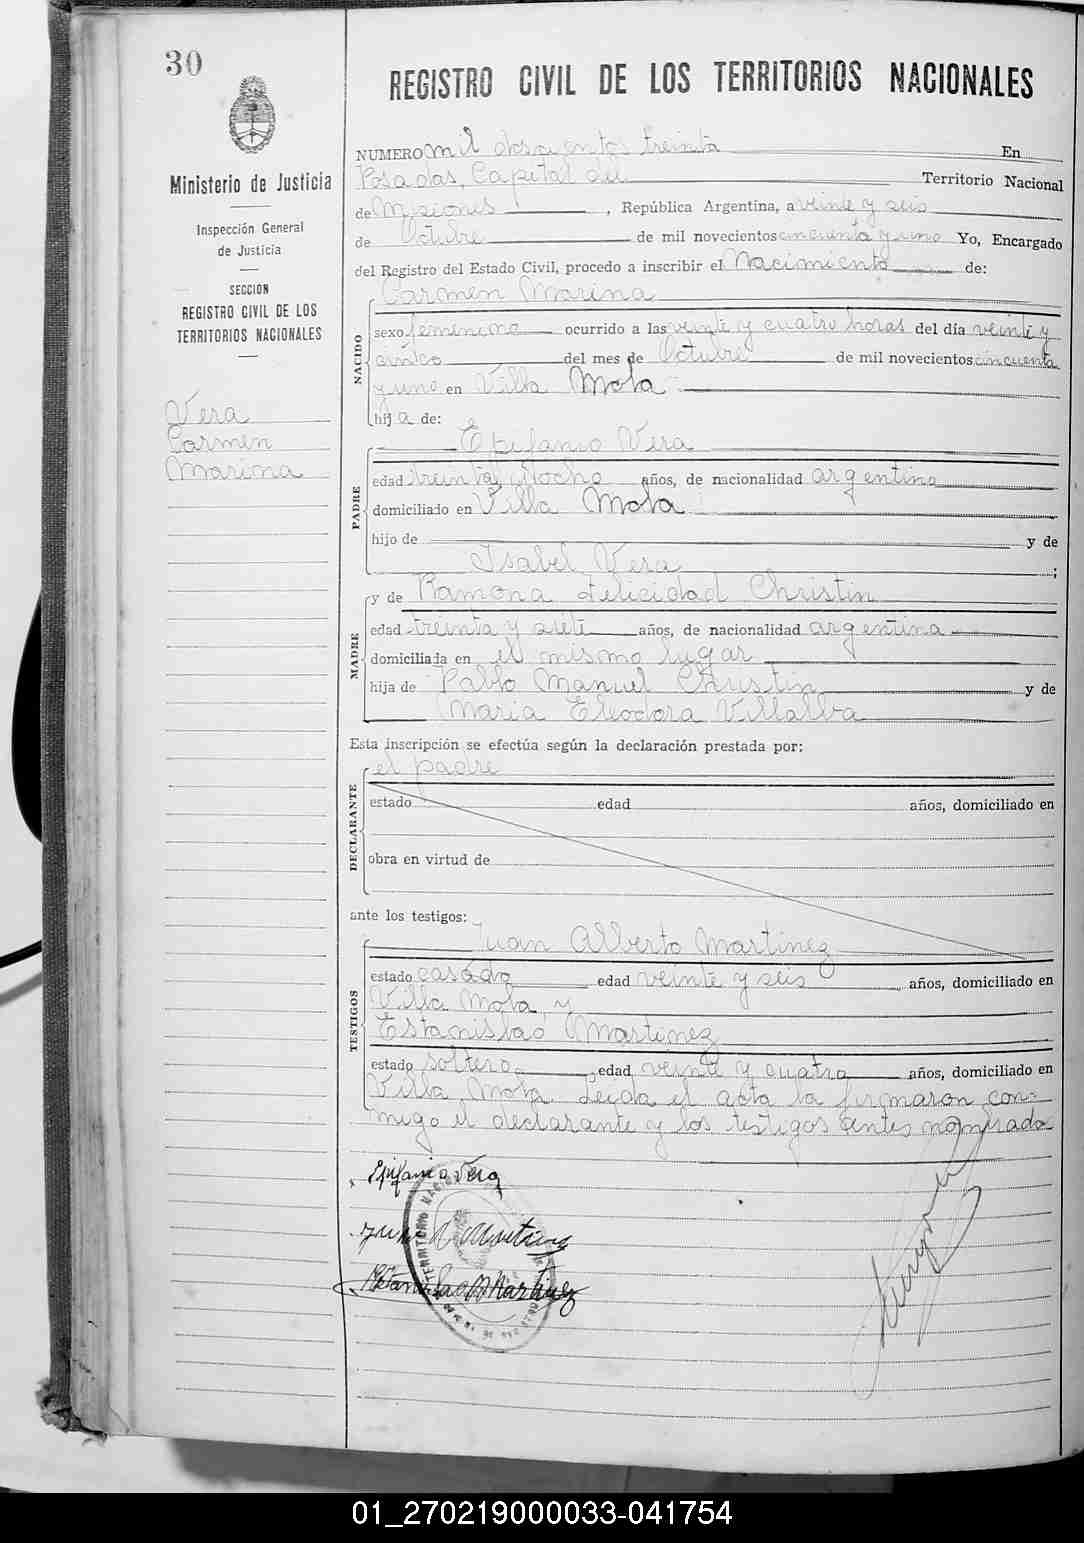 30
REGISTRO CIVIL DE LOS TERRITORIOS NACIONALES
Ministerio de Justicia
Inspección General
de Justicia
SECCIÓN
REGISTRO CIVIL DE LOS
TERRITORIOS NACIONALES
Vera
Carmen
Marina
NUMERO mil doscientos treinta En
Posadas, Capital del Territorio Nacional
de Misiones, República Argentina, a veinte y seis
de Octubre de mil novecientos cincuenta y uno Yo, Encargado
del Registro del Estado Civil, procedo a inscribir el Nacimiento de:
NACIDO
Carmen Marina
sexo femenino ocurrido a las veinte y cuatro horas del día veinte y
cinco del mes de Octubre de mil novecientos cincuenta
y uno en Villa Mola
hija de:
PADRE
Epifanio Vera
edad treinta y ocho años, de nacionalidad argentina
domiciliado en Villa Mola
hijo de y de
Isabel Vera ;
MADRE
y de Ramona Felicidad Christin
edad treinta y siete años, de nacionalidad argentina
domiciliada en el mismo lugar
hija de Pablo Manuel Christin y de
Maria Eleodora Villalba
Esta inscripción se efectúa según la declaración prestada por:
DECLARANTE
el padre
estado edad años, domiciliado en
obra en virtud de
ante los testigos:
TESTIGOS
Juan Alberto Martinez
estado casado edad veinte y seis años, domiciliado en
Villa Mola, y
Estanislao Martinez
estado soltero edad veinte y cuatro años, domiciliado en
Villa Mola. Leida el acta la firmaron con-
migo el declarante y los testigos antes nombrados
Epifanio Vera
Juan A Martinez
Estanislao Martinez
TERRITORIO NACIONAL
01_270219000033-041754